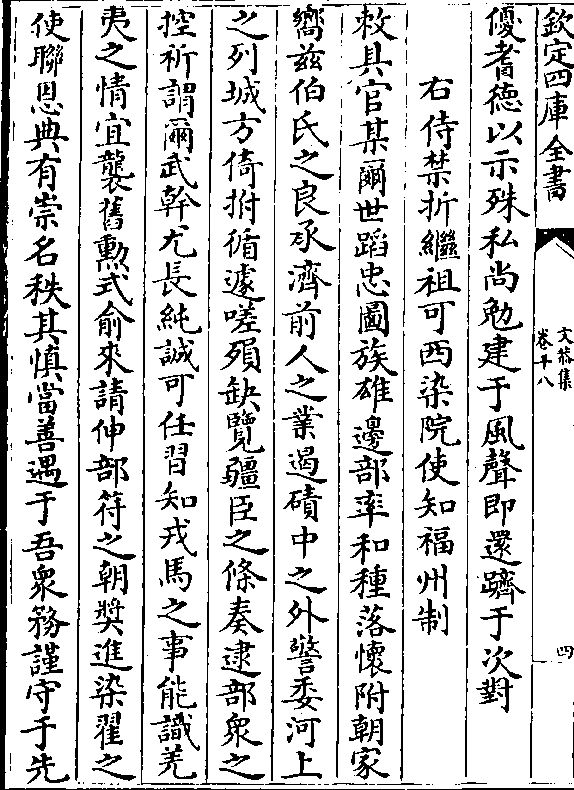 欽定四庫全書
文恭集
卷十八
四
優耆德以示殊私尚勉建于風聲即還躋于次對
右侍禁折繼祖可西染院使知福州制
敕具官某爾世蹈忠圖族雄邊部率和種落懷附朝家
嚮兹伯氏之良承濟前人之業遏磧中之外警委河上
之列城方倚拊循遽嗟殞缺覽疆臣之條奏逮部衆之
控祈謂爾武幹尤長純誠可任習知戎馬之事能識羌
夷之情宜襲舊勲式俞來請伸部符之朝奬進染翟之
使聯恩典有崇名秩其慎當善遇于吾衆務謹守于先